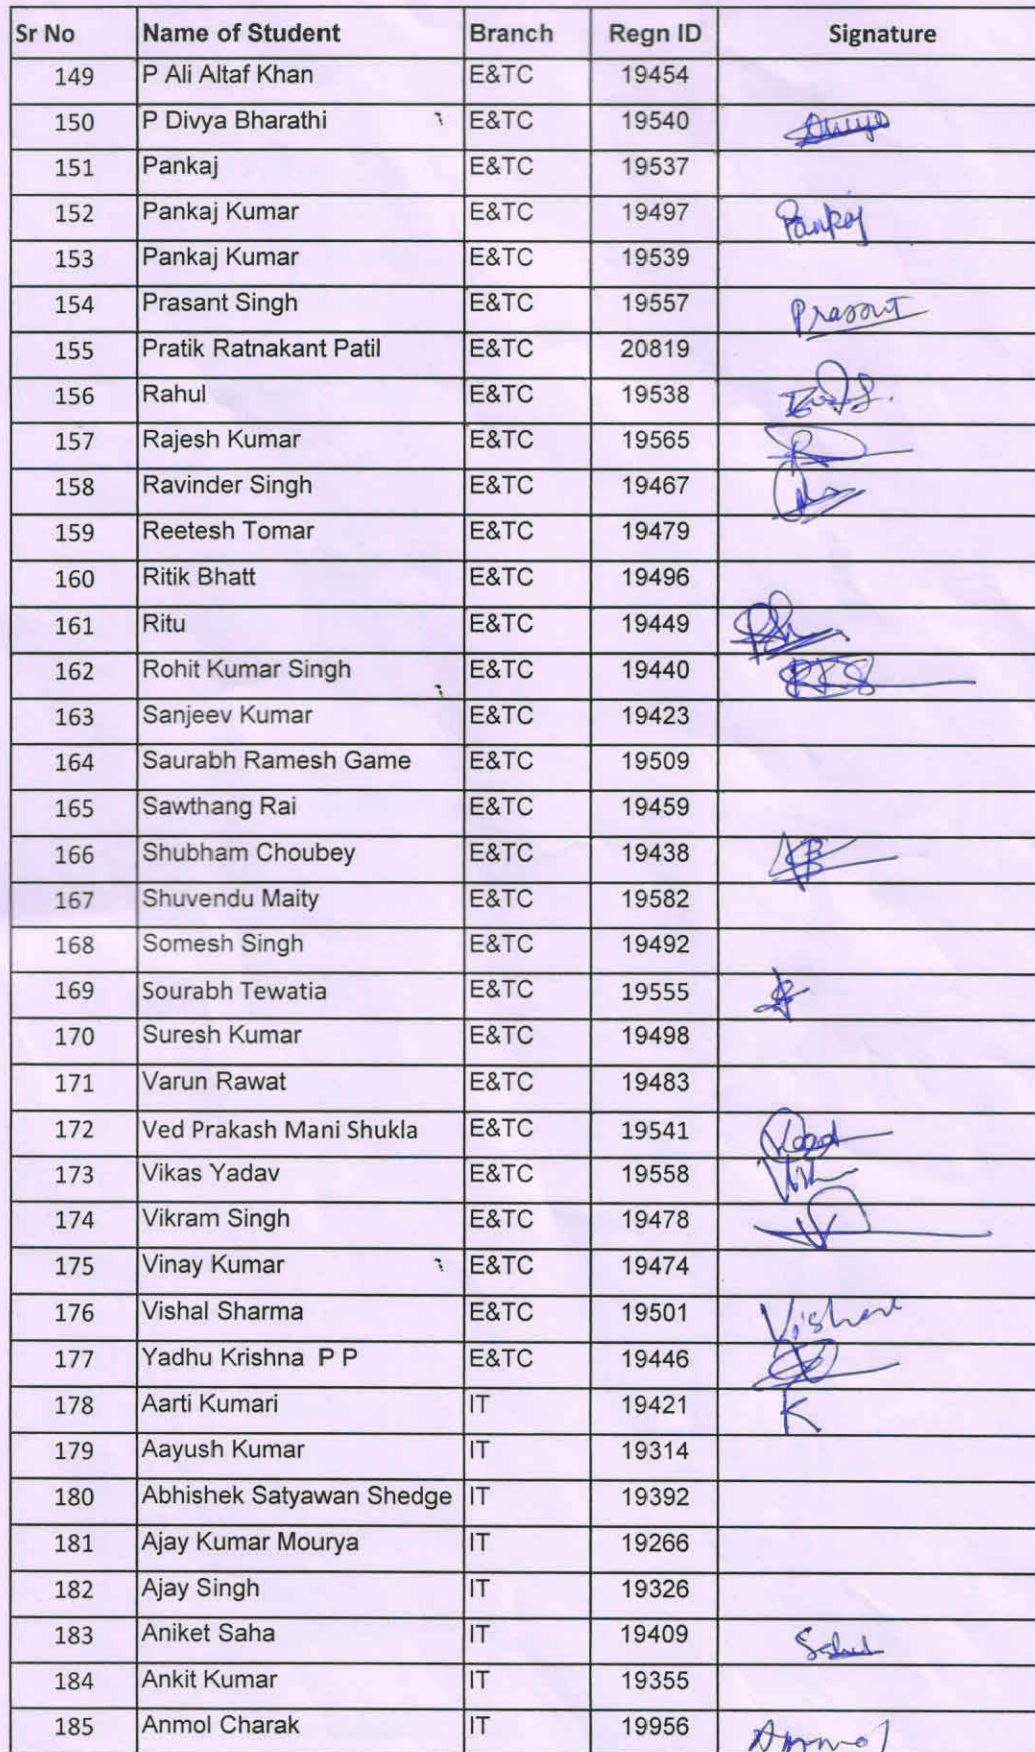 Sr No Name of Student Branch Regn ID Signature
149 P Ali Altaf Khan E&TC 19454
150 P Divya Bharathi E&TC 19540 Divya
151 Pankaj E&TC 19537
152 Pankaj Kumar E&TC 19497 Pankaj
153 Pankaj Kumar E&TC 19539
154 Prasant Singh E&TC 19557 Prasant
155 Pratik Ratnakant Patil E&TC 20819
156 Rahul E&TC 19538
157 Rajesh Kumar E&TC 19565
158 Ravinder Singh E&TC 19467
159 Reetesh Tomar E&TC 19479
160 Ritik Bhatt E&TC 19496
161 Ritu E&TC 19449
162 Rohit Kumar Singh E&TC 19440 RKS
163 Sanjeev Kumar E&TC 19423
164 Saurabh Ramesh Game E&TC 19509
165 Sawthang Rai E&TC 19459
166 Shubham Choubey E&TC 19438
167 Shuvendu Maity E&TC 19582
168 Somesh Singh E&TC 19492
169 Sourabh Tewatia E&TC 19555
170 Suresh Kumar E&TC 19498
171 Varun Rawat E&TC 19483
172 Ved Prakash Mani Shukla E&TC 19541 Ved
173 Vikas Yadav E&TC 19558
174 Vikram Singh E&TC 19478
175 Vinay Kumar E&TC 19474
176 Vishal Sharma E&TC 19501 Vishal
177 Yadhu Krishna P P E&TC 19446
178 Aarti Kumari IT 19421 K
179 Aayush Kumar IT 19314
180 Abhishek Satyawan Shedge IT 19392
181 Ajay Kumar Mourya IT 19266
182 Ajay Singh IT 19326
183 Aniket Saha IT 19409
184 Ankit Kumar IT 19355
185 Anmol Charak IT 19956 Anmol